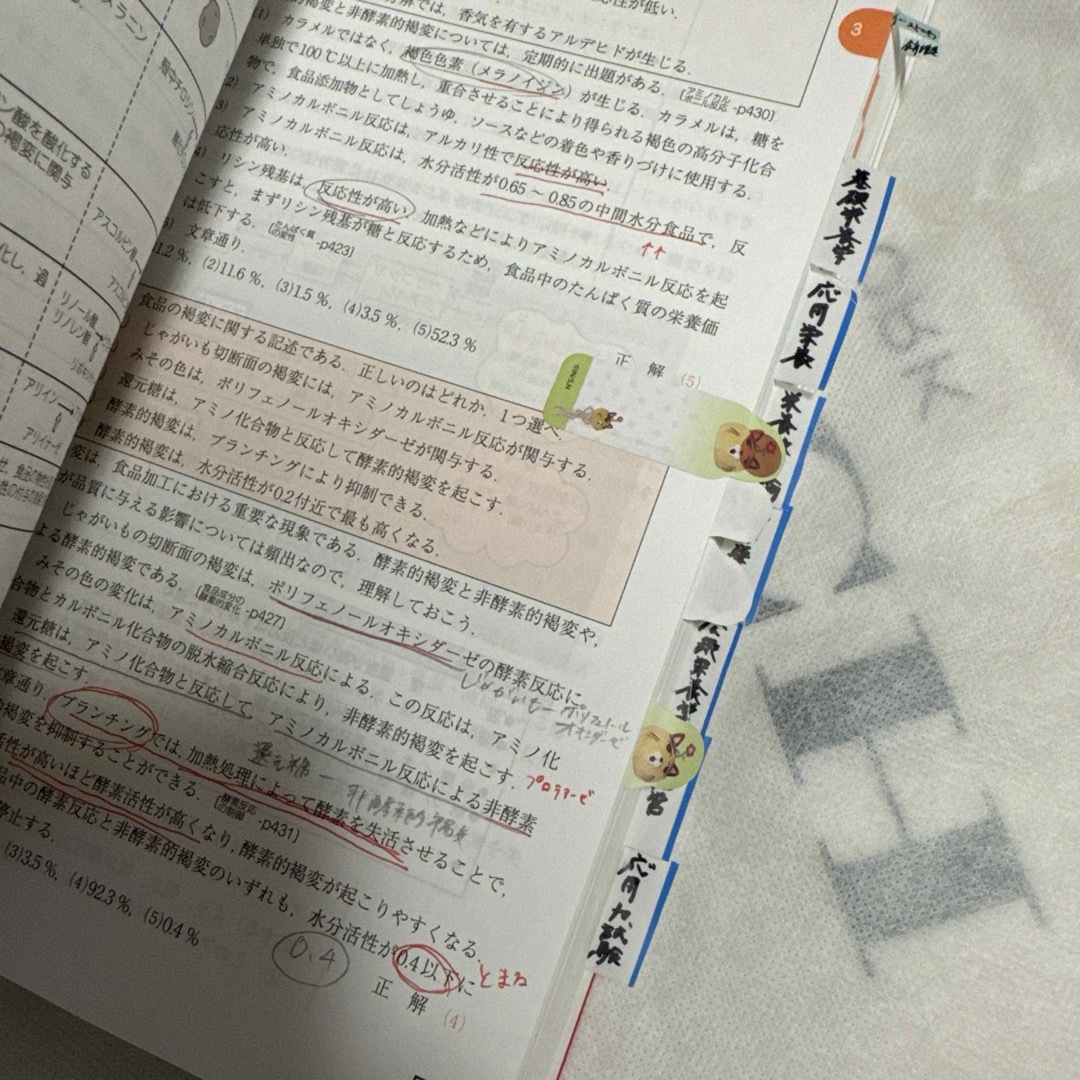 メラニン
ン酸を酸化する
の褐変に関与
化し，過
アスコルビ
リノール酸
リノレン酸
アリイン
応性が低い．
解では，香気を有するアルデヒドが生じる．
的褐変と非酵素的褐変については，定期的に出題がある．
1) カラメルではなく，褐色色素（メラノイジン）が生じる．カラメルは，糖を
単独で100℃以上に加熱し，重合させることにより得られる褐色の高分子化合
物で，食品添加物としてしょうゆ，ソースなどの着色や香りづけに使用する．
アミノカルボニル反応 -p430]
2) アミノカルボニル反応は，アルカリ性で反応性が高い．
3) アミノカルボニル反応は，水分活性が0.65～0.85の中間水分食品で，反
応性が高い．
4) リシン残基は，反応性が高い．加熱などによりアミノカルボニル反応を起
こすと，まずリシン残基が糖と反応するため，食品中のたんぱく質の栄養価
は低下する． -p423]
文章通り．
1.2％，(2)11.6％，(3)1.5％，(4)3.5％，(5)52.3％
正　解　(5)
食品の褐変に関する記述である．正しいのはどれか．1つ選べ．
じゃがいも切断面の褐変には，アミノカルボニル反応が関与する．
みその色は，ポリフェノールオキシダーゼが関与する．
還元糖は，アミノ化合物と反応して酵素的褐変を起こす．
酵素的褐変は，ブランチングにより抑制できる．
酵素的褐変は，水分活性が0.2付近で最も高くなる．
変は，食品加工における重要な現象である．酵素的褐変と非酵素的褐変や，
が品質に与える影響については頻出なので，理解しておこう．
じゃがいもの切断面の褐変は，ポリフェノールオキシダーゼの酵素反応に
よる酵素的褐変である． 食品成分の酵素的変化 -p427]
じゃがいもーポリフェノールオキシダーゼ
みその色の変化は，アミノカルボニル反応による．この反応は，アミノ化
合物とカルボニル化合物の脱水縮合反応により，非酵素的褐変を起こす．
還元糖は，アミノ化合物と反応して，アミノカルボニル反応による非酵素
褐変を起こす．
プロテアーゼ
還元糖ー非酵素的褐変
章通り．ブランチングでは，加熱処理によって酵素を失活させることで，
的褐変を抑制することができる． 酵素反応の制御 -p431]
活性が高いほど酵素活性が高くなり，酵素的褐変が起こりやすくなる．
品中の酵素反応と非酵素的褐変のいずれも，水分活性が0.4以下に
停止する．
とまる
0.4
(3)3.5％，(4)92.3％，(5)0.4％
正　解　(4)
3
基礎栄養学
応用栄養
栄養
応用力試験